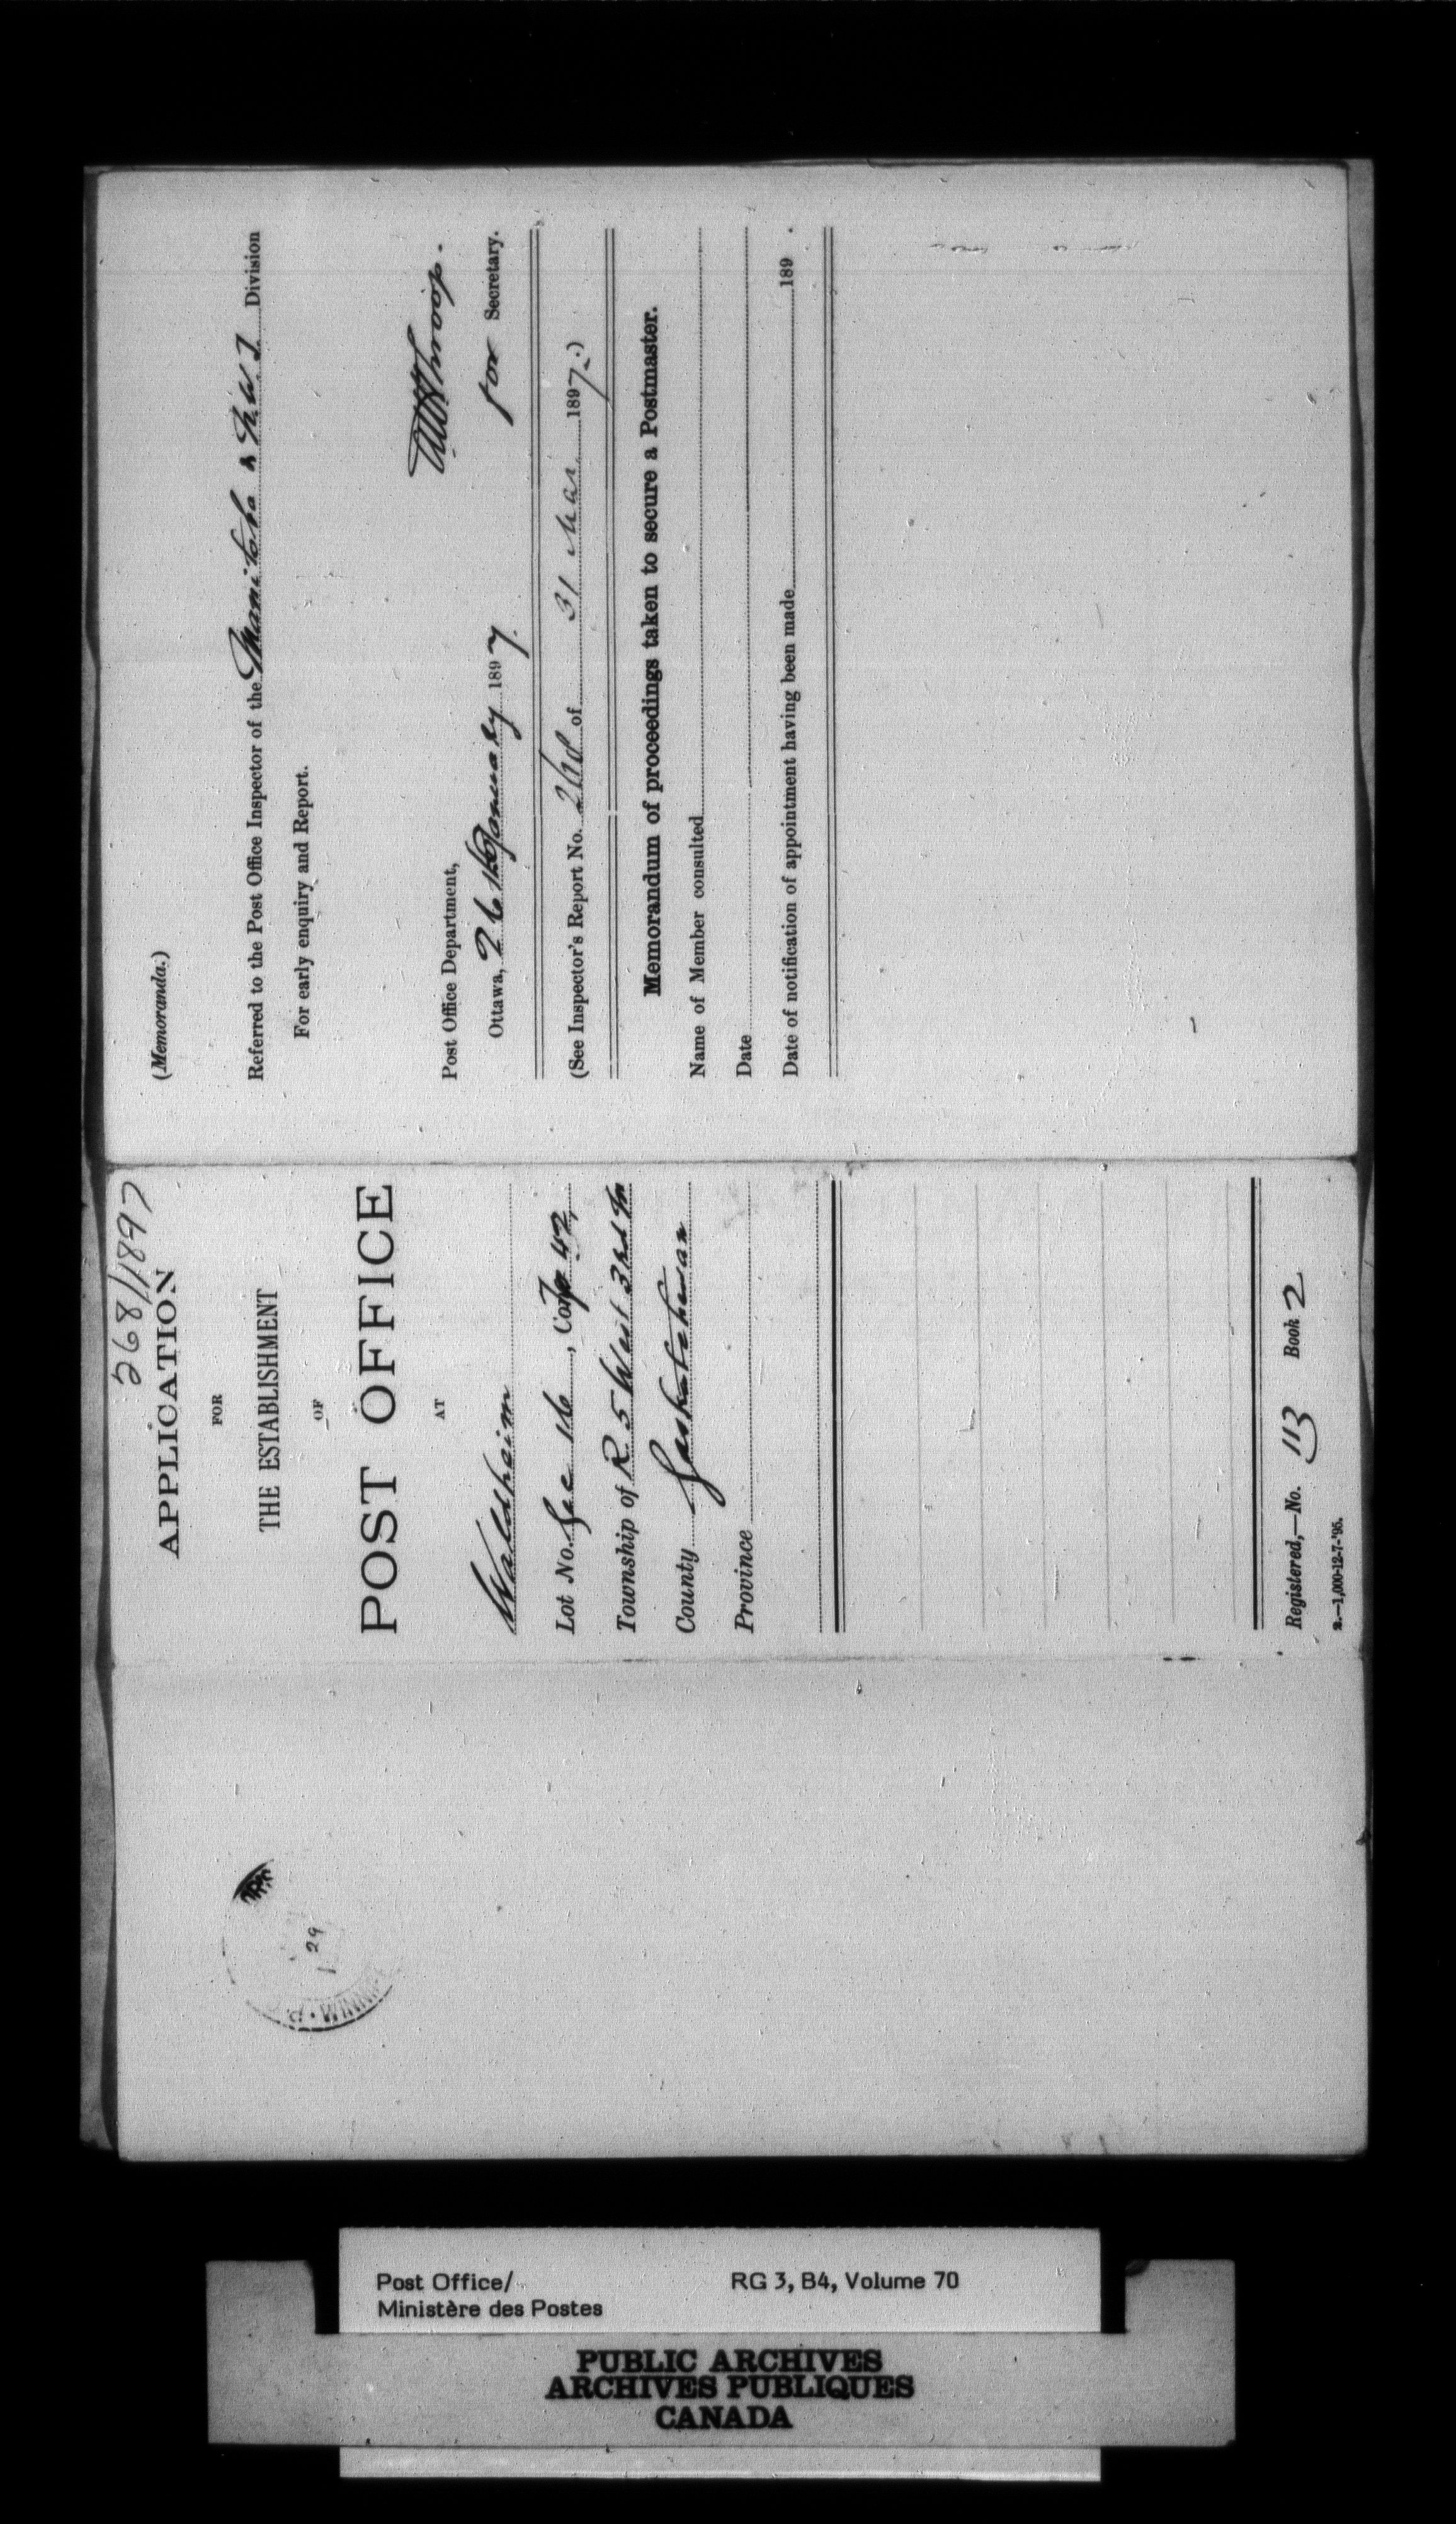 268/1897
APPLICATION
FOR
THE ESTABLISHMENT
OF
POST OFFICE
AT
Waldheim
Lot No. Sec 16, Con Tp 42,
Township of R 5 West 3rd M
County Saskatchewan
Province
Registered,—No. 113 Book 2
2.—1,000-12-7-'95.
(Memoranda.)
Referred to the Post Office Inspector of the Manitoba & N.W.T. Division
For early enquiry and Report.
Throop.
for Secretary.
Post Office Department,
Ottawa, 26th January 1897.
(See Inspector's Report No. of 31 Mar 1897.)
Memorandum of proceedings taken to secure a Postmaster.
Name of Member consulted
Date
Date of notification of appointment having been made 189 .
29
Post Office/
Ministère des Postes
RG 3, B4, Volume 70
PUBLIC ARCHIVES
ARCHIVES PUBLIQUES
CANADA